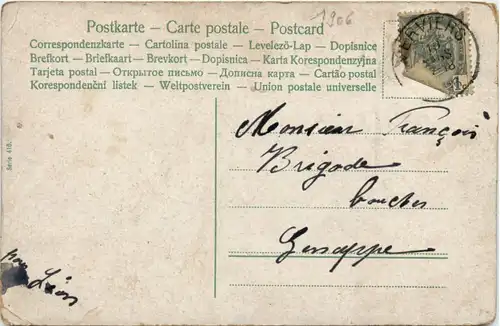 1906
Postkarte - Carte postale - Postcard
Correspondenzkarte - Cartolina postale - Levelező-Lap - Dopisnice
Brefkort - Briefkaart - Brevkort - Dopisnica - Karta Korespondenzyjna
Tarjeta postal - Открытое письмо - Дописна карта - Cartão postal
Korespondenční listek - Weltpostverein - Union postale universelle
VERVIERS
1
Serie 410.
Monsieur François
Brigode
boucher
Genappe
pour
Léon